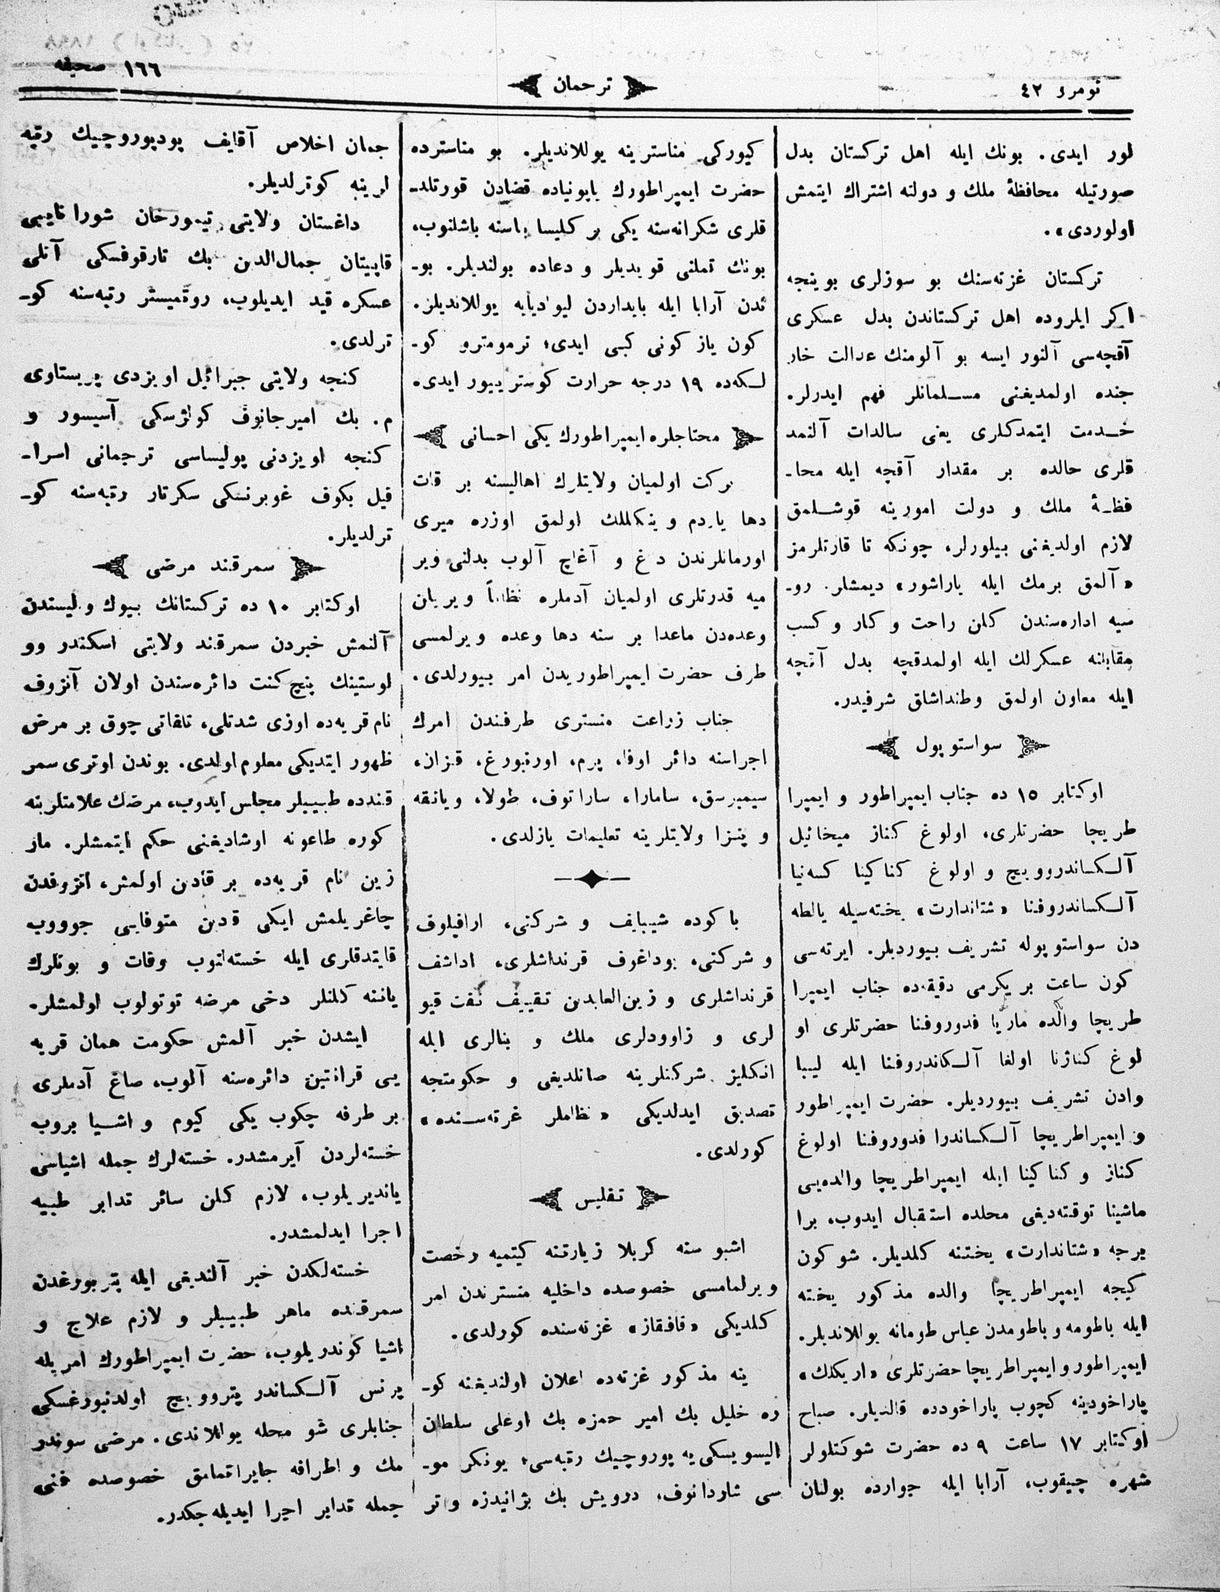 نومرو ٤٢
ترجمان
١٦٦ صحیفه
لور ایدی. بونك ایله اهل ترکستان بدل
صورتیله محافظۀ ملك و دولته اشتراك ایتمش
اولوردی».
ترکستان غزته‌سنك بو سوزلری بوینجه
اکر ایلروده اهل ترکستاندن بدل عسکری
آقچه‌سی آلنور ایسه بو آلومنك عدالت خار
جنده اولمدیغنی مسلمانلر فهم ایدرلر.
خدمت ایتمدکلری یعنی سالدات آلنمد
قلری حالده بر مقدار آقچه ایله محا۔
فظۀ ملك و دولت امورینه قوشلمق
لازم اولدیغنی بیلورلر، چونکه تا قارتلرمز
«آلمق برمك ایله یاراشور» دیمشلر. رو۔
سیه اداره‌سندن کلن راحت و کار و کسب
مقابلنه عسکرلك ایله اولمدقچه بدل آقچه
ایله معاون اولمق وطنداشلق شرفیدر.
سواستوپول
اوکتابر ١٥ ده جناب ایمپراطور و ایمپرا
طریچا حضرتلری، اولوغ کناز میخائیل
آلکساندروویچ و اولوغ کناکینا کسه‌نیا
آلکساندروفنا «شتاندارت» یخته‌سیله یالطه
دن سواستوپوله تشریف بیوردیلر. ایرته‌سی
کون ساعت بر یکرمی دقیقه‌ده جناب ایمپرا
طریچا والده ماریا فدوروفنا حضرتلری او
لوغ کناژنا اولغا آلکاندروفنا ایله لیبا
وادن تشریف بیوردیلر. حضرت ایمپراطور
و ایمپراطریچا آلکساندرا فدوروفنا اولوغ
کناز و کناکینا ایله ایمپراطریچا والده‌یی
ماشینا توقته‌دیغی محلده استقبال ایدوب، برا
برجه «شتاندارت» یختنه کلدیلر. شو کون
کیجه ایمپراطریچا والده مذکور یخته
ایله باطومه و باطومدن عباس طومانه یوللاندیلر.
ایمپراطور و ایمپراطریچا حضرتلری «اریکلك»
پاراخودینه کچوب پاراخودده قالدیلر. صباح
اوکتابر ١٧ ساعت ٩ ده حضرت شوکتلولر
شهره چیقوب، آرابا ایله جوارده بولنان
کیورکی مناسترینه یوللاندیلر. بو مناسترده
حضرت ایمپراطورك یاپونیاده قضادن قورتلد۔
قلری شکرانه‌سنه یکی بر کلیسا یاسنه باشلنوب،
بونك تملنی قویدیلر و دعاده بولندیلر. بو۔
ئدن آرابا ایله بایداردن لیوادیایه یوللاندیلر.
کون یاز کونی کبی ایدی؛ ترمومترو کو۔
لکه‌ده ١٩ درجه حرارت کوسترییور ایدی.
محتاجلره ایمپراطورك یکی احسانی
برکت اولمیان ولایتلرك اهالیسنه بر قات
دها یاردم و ینکللك اولمق اوزره میری
اورمانلرندن داغ و آغاچ آلوب بدلنی ویر
میه قدرتلری اولمیان آدملره نظاماً ویریان
وعده‌دن ماعدا بر سنه دها وعده ویرلمسی
طرف حضرت ایمپراطوریدن امر بیورلدی.
جناب زراعت منستری طرفندن امرك
اجراسنه دائر اوفا، پرم، اورنبورغ، قزان،
سیمبرسق، سامارا، ساراتوف، طولا، ویاتقه
و پنزا ولایتلرینه تعلیمات یازلدی.
باکوده شیبایف و شرکتی، ارافیلوف
و شرکتی، بوداغوف قرنداشلری، اداشف
قرنداشلری و زین‌العابدین تقییف نفت قیو
لری و زاوودلری ملك و بنالری ایله
انکلیز شرکتلرینه صاتلدیغی و حکومتجه
تصدیق ایدلدیکی «نظاملر غزته‌سنده»
کورلدی.
تفلیس
اشبو سنه کربلا زیارتنه کیتمیه رخصت
ویرلمامسی خصوصده داخلیه منسترندن امر
کلدیکی «قافقاز» غزته‌سنده کورلدی.
ینه مذکور غزته‌ده اعلان اولندیغنه کو۔
ره خلیل بك امیر حمزه بك اوغلی سلطان
الیسویسکی‌یه پوروچیك رتبه‌سی؛ یونکر مو۔
سی شاردانوف، درویش بك بژانیدزه و اتر
جمان اخلاص آقایف پودپوروچیك رتبه
لرینه کوترلدیلر.
داغستان ولایتی تیمورخان شورا نایبی
قاپیتان جمال‌الدین بك تارقوفسکی آتلی
عسکره قید ایدیلوب، روتمیستر رتبه‌سنه کو۔
ترلدی.
کنجه ولایتی جبرائیل اویزدی پریستاوی
م. بك امیرجانوف کولژسکی آسیسور و
کنجه اویزدنی پولیساسی ترجمانی اسرا۔
فیل بکوف غوبرنسکی سکرتار رتبه‌سنه کو۔
ترلدیلر.
سمرقند مرضی
اوکتابر ١٠ ده ترکستانك بیوك والیسندن
آلنمش خبردن سمرقند ولایتی اسکندر وو
لوستینك پنج‌کنت دائره‌سندن اولان آنزوف
نام قریه‌ده اوزی شدتلی، تلفاتی چوق بر مرض
ظهور ایتدیکی معلوم اولدی. بوندن اوتری سمر
قندده طبیبلر مجلس ایدوب، مرضك علامتلرینه
کوره طاعونه اوشادیغنی حکم ایتمشلر. ماز
زین نام قریه‌ده بر قادن اولمش، انزوفدن
چاغریلمش ایکی قدین متوفایی جوووب
قایتدقلری ایله خسته‌لنوب وفات و بونلرك
یاننه کلنلر دخی مرضه توتولوب اولمشلر.
ایشدن خبر آلمش حکومت همان قریه
یی قرانتین دائره‌سنه آلوب، صاغ آدملری
بر طرفه چکوب یکی کیوم و اشیا بروب
خسته‌لردن آیرمشدر. خسته‌لرك جمله اشیاسی
یاندیریلوب، لازم کلن سائر تدابر طبیه
اجرا ایدلمشدر.
خسته‌لکدن خبر آلندیغی ایله پتربورغدن
سمرقنده ماهر طبیبلر و لازم علاج و
اشیا کوندریلوب، حضرت ایمپراطورك امریله
پرنس آلکساندر پتروویچ اولدنبورغسکی
جنابلری شو محله یوللاندی. مرضی سوندر
مك و اطرافه جایراتمامق خصوصده فنی
جمله تدابر اجرا ایدیله‌جکدر.